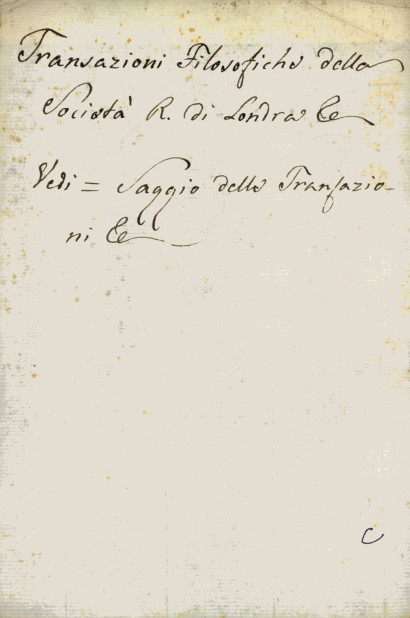 Transazioni Filosofiche della
Società R. di Londra &c
Vedi = Saggio delle Transazio-
ni &c
C